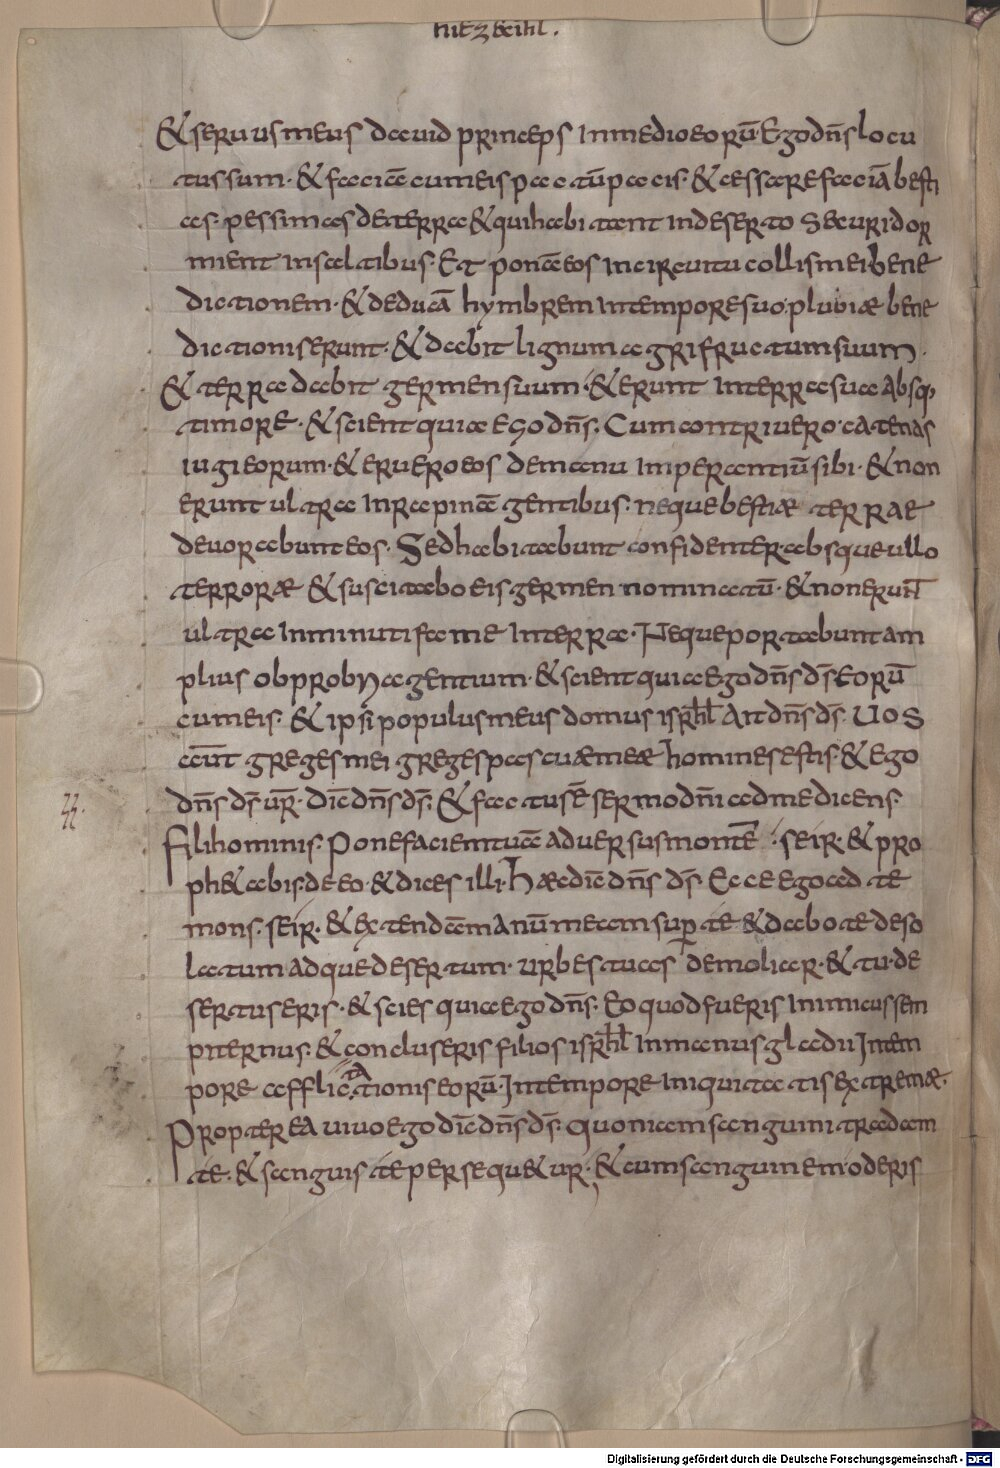 hiezechihl.
& seruus meus dauid princeps in medio eorū. Ego dn̄s locu
tus sum. & faciā cum eis pactū pacis. & cessare faciā besti
as pessimas de terra & qui habitant in deserto securi dor
mient in saltibus. Et ponā eos in circuitu collis mei bene
dictionem. & deducā hymbrem in tempore suo. pluuiæ bene
dictionis erunt. & dabit lignum agri fructum suum.
& terra dabit germen suum. & erunt in terra sua absq;
timore. & scient quia ego dn̄s. Cum contriuero catenas
iugi eorum. & eruero eos de manu imperantiū sibi. & non
erunt ultra in rapinā gentibus. neque bestiæ terrae
deuorabunt eos. Sed habitabunt confidenter absque ullo
terroræ & suscitabo eis germen nominatū. & non erunt
ultra inminuti fame in terra. Neque portabunt am
plius obprobya gentium. & scient quia ego dn̄s ds̄ eorū
cum eis. & ipsi populus meus domus isrhl̄ Ait dn̄s ds̄. Uos
aūt greges mei greges pascuæ meæ homines estis. & ego
dn̄s ds̄ ur̄. dic̄ dn̄s ds̄. & factus ē sermo dn̄i ad me dicens.
Fili hominis. Pone faciem tuā aduersus montē seir. & pro
ph&abis de eo. & dices illi. Hæc dic̄ dn̄s ds̄. Ecce ego ad te
mons seir. & extendam manū meam sup te & dabo te deso
latum adque desertum. urbes tuas demoliar. & tu de
sertus eris. & scies quia ego dn̄s. Eo quod fueris inimicus sem
piternus. & concluseris filios isrhl̄ in manus gladii in tem
pore afflictationis eorū. in tempore iniquitatis extremæ.
Propterea uiuo ego dic̄ dn̄s ds̄. quoniam sanguini tradam
te. & sanguis te persequ&ur. & cum sanguinem oderis
Digitalisierung gefördert durch die Deutsche Forschungsgemeinschaft - DFG